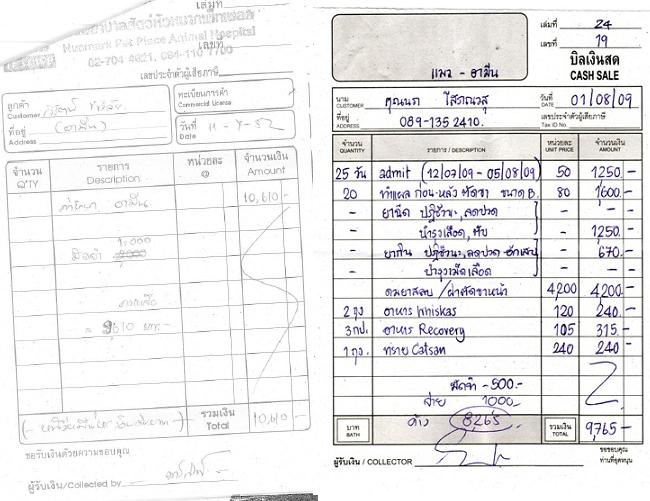 เล่มที่
โรงพยาบาลสัตว์หัวหมากเพ็ทเพลส
Huamark Pet Place Animal Hospital
02-704 4021, 084-110-7700
เลขที่
เลขประจำตัวผู้เสียภาษี
ลูกค้า
Customer
ที่อยู่ (อามีน)
Address
ทะเบียนการค้า
Commercial License
วันที่ 11-7-52
Date
จำนวน รายการ หน่วยละ จำนวนเงิน
Q'TY Description @ Amount
ค่ารักษา อามีน 10,610-
1,000
มัดจำ 2,000
คงเหลือ
= 9610 บาท.-
รวมเงิน 10,610-
Total
ขอรับเงินด้วยความขอบคุณ
ผู้รับเงิน/Collected by
เล่มที่ 24
เลขที่ 19
แมว - อามีน
บิลเงินสด
CASH SALE
นาม คุณนภ โสภณวสุ
CUSTOMER
วันที่ 01/08/09
DATE
ที่อยู่ 089-135 2410.
ADDRESS
เลขประจำตัวผู้เสียภาษี
Tax ID No.
จำนวน รายการ / DESCRIPTION หน่วยละ จำนวนเงิน
QUANTITY UNIT PRICE AMOUNT
25 วัน admit (12/07/09 - 05/08/09) 50 1250.-
20 ทำแผล ก่อน-หลัง ตัดขา ขนาด B. 80 1,600.-
- ยาฉีด ปฏิชีวนะ, ลดปวด - -
- บำรุงเลือด, ตับ - 1250.-
- ยากิน ปฏิชีวนะ, ลดปวด อักเสบ - 670.-
- บำรุงเม็ดเลือด - -
ดมยาสลบ / ผ่าตัดขาหน้า 4,200 4,200.-
2 ถุง อาหาร Whiskas 120 240.-
3 กป. อาหาร Recovery 105 315.-
1 ถุง ทราย Catsan 240 240.-
มัดจำ -500.-
จ่าย 1000.-
ค้าง 8,265
บาท รวมเงิน 9,765-
BATH TOTAL
ผู้รับเงิน / COLLECTOR
ขอขอบคุณ
ท่านที่อุดหนุน